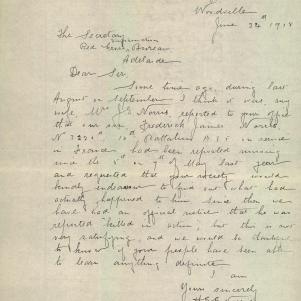 Woodville
June 24th 1918
The Secretary
Information
Red Cross Bureau
Adelaide
Dear Sir
Some time ago, during last
August or September I think it was, my
wife Mrs J S Norris reported to your office
that our son Frederick James Norris
10th Battalion A.I.F. in
in France had been reported missing
since the of May last year
and requested that your society would
kindly endeavour to find out what had
actually happened to him since then we
have had an official notice that he was
reported killed in action, but this is not
very satisfying, and we would be thankful
to know if your people have been able
to learn anything definite
I am
Yours sincerely